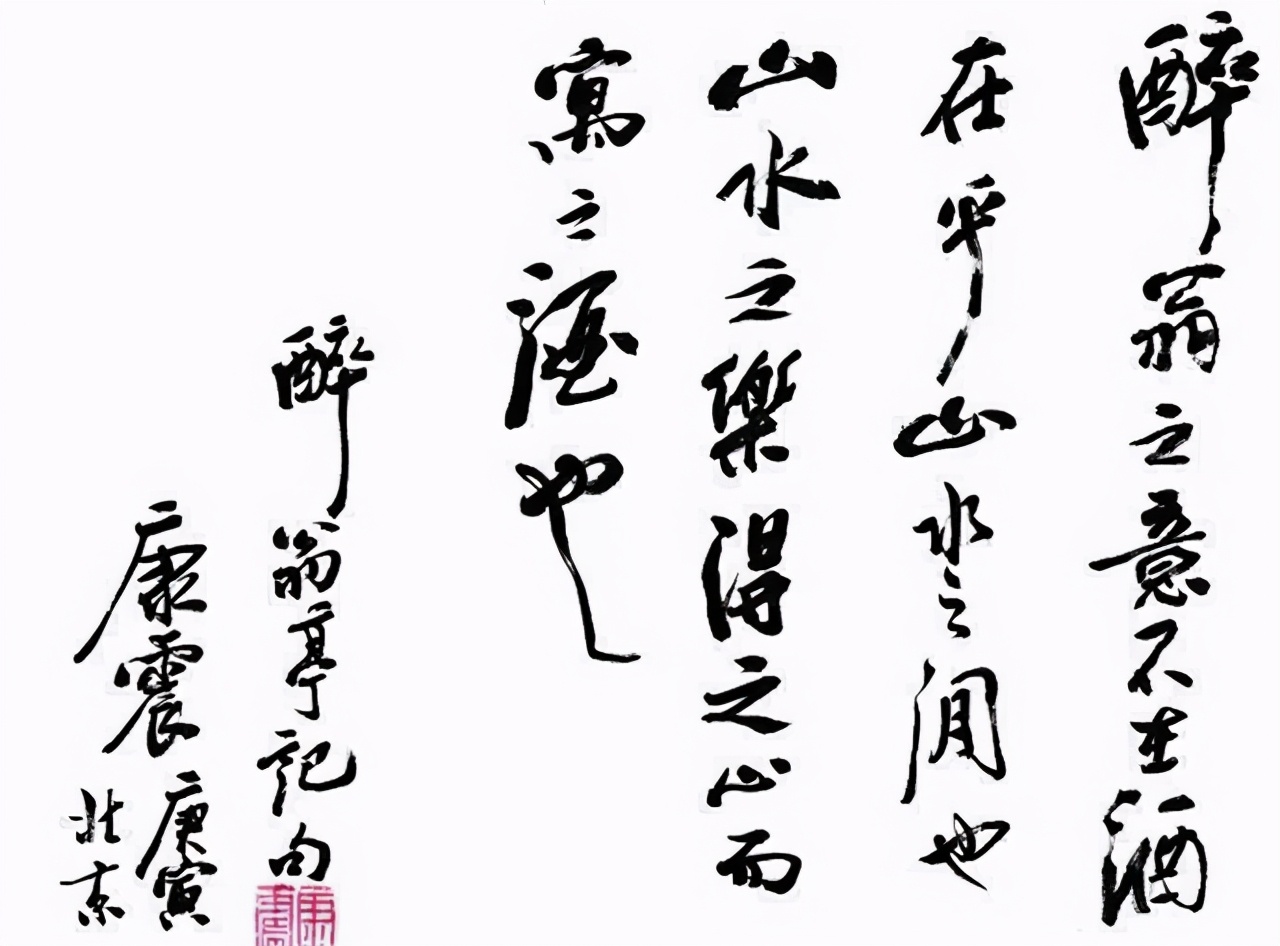 醉翁之意不在酒
在乎山水之間也
山水之樂得之心而
寓之酒也
醉翁亭記句
康震 庚寅
北京
康震